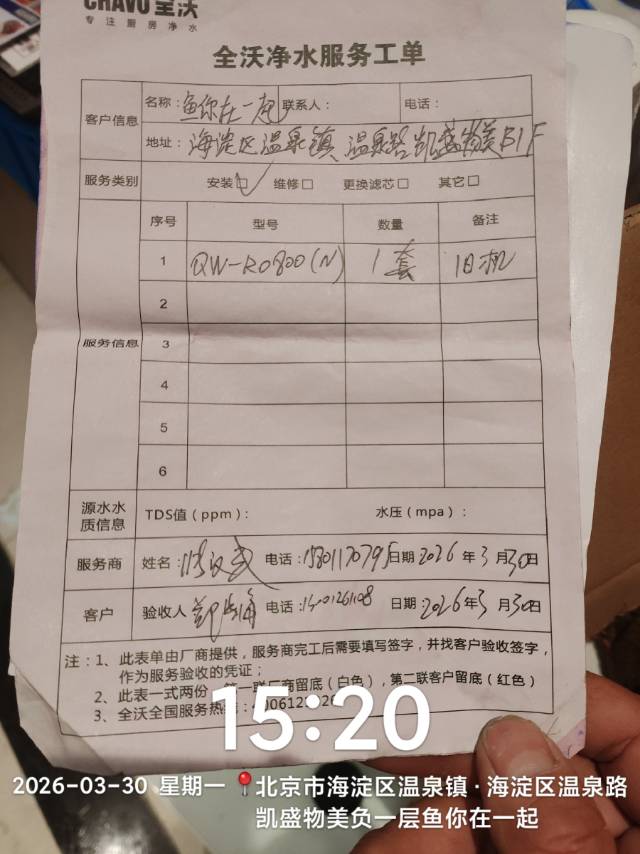 CHAVO 全沃
专注厨房净水
全沃净水服务工单
客户信息
名称：鱼你在一起 联系人： 电话：
地址：海淀区温泉镇、温泉路凯盛物美B1F
服务类别 安装☑ 维修□ 更换滤芯□ 其它□
服务信息
序号 型号 数量 备注
1 QW-RO800(N) 1套 旧机
2
3
4
5
6
源水水质信息 TDS值（ppm）： 水压（mpa）：
服务商 姓名： 电话：15801170795 日期 2026年3月30日
客户 验收人 电话： 日期：2026年3月30日
注：1、此表单由厂商提供，服务商完工后需要填写签字，并找客户验收签字，
作为服务验收的凭证；
2、此表一式两份，第一联厂商留底（白色），第二联客户留底（红色）
3、全沃全国服务热线：
15:20
2026-03-30 星期一 📍北京市海淀区温泉镇·海淀区温泉路
凯盛物美负一层鱼你在一起